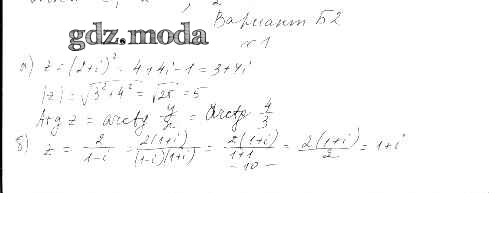 Вариант Б2
gdz.moda
№1
а) z = (2+i)² = 4+4i-1 = 3+4i
|z| = √3²+4² = √25 = 5
Arg z = arctg y/x = arctg 4/3
б) z = 2/(1-i) = 2(1+i)/((1-i)(1+i)) = 2(1+i)/(1+1) = 2(1+i)/2 = 1+i
- 10 -